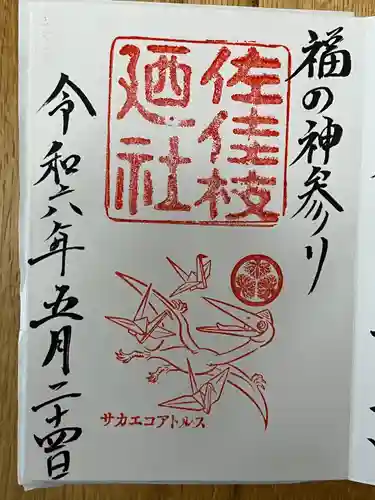 福の神参り
佐佳枝
廼社
サカエコアトルス
令和六年五月二十四日